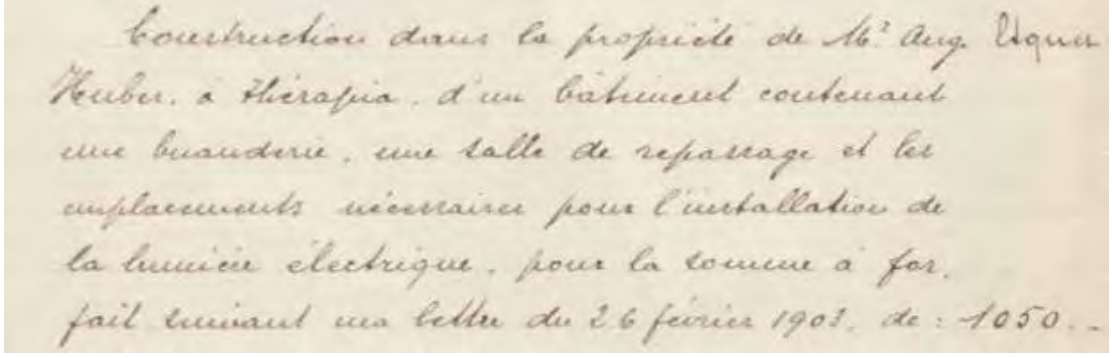 Construction dans la propriété de Mr Aug.
Huber, à Thérapia, d'un bâtiment contenant
une buanderie, une salle de repassage et les
emplacements nécessaires pour l'installation de
la lumière électrique, pour la somme à for.
fait suivant ma lettre du 26 février 1903, de : 1050.-